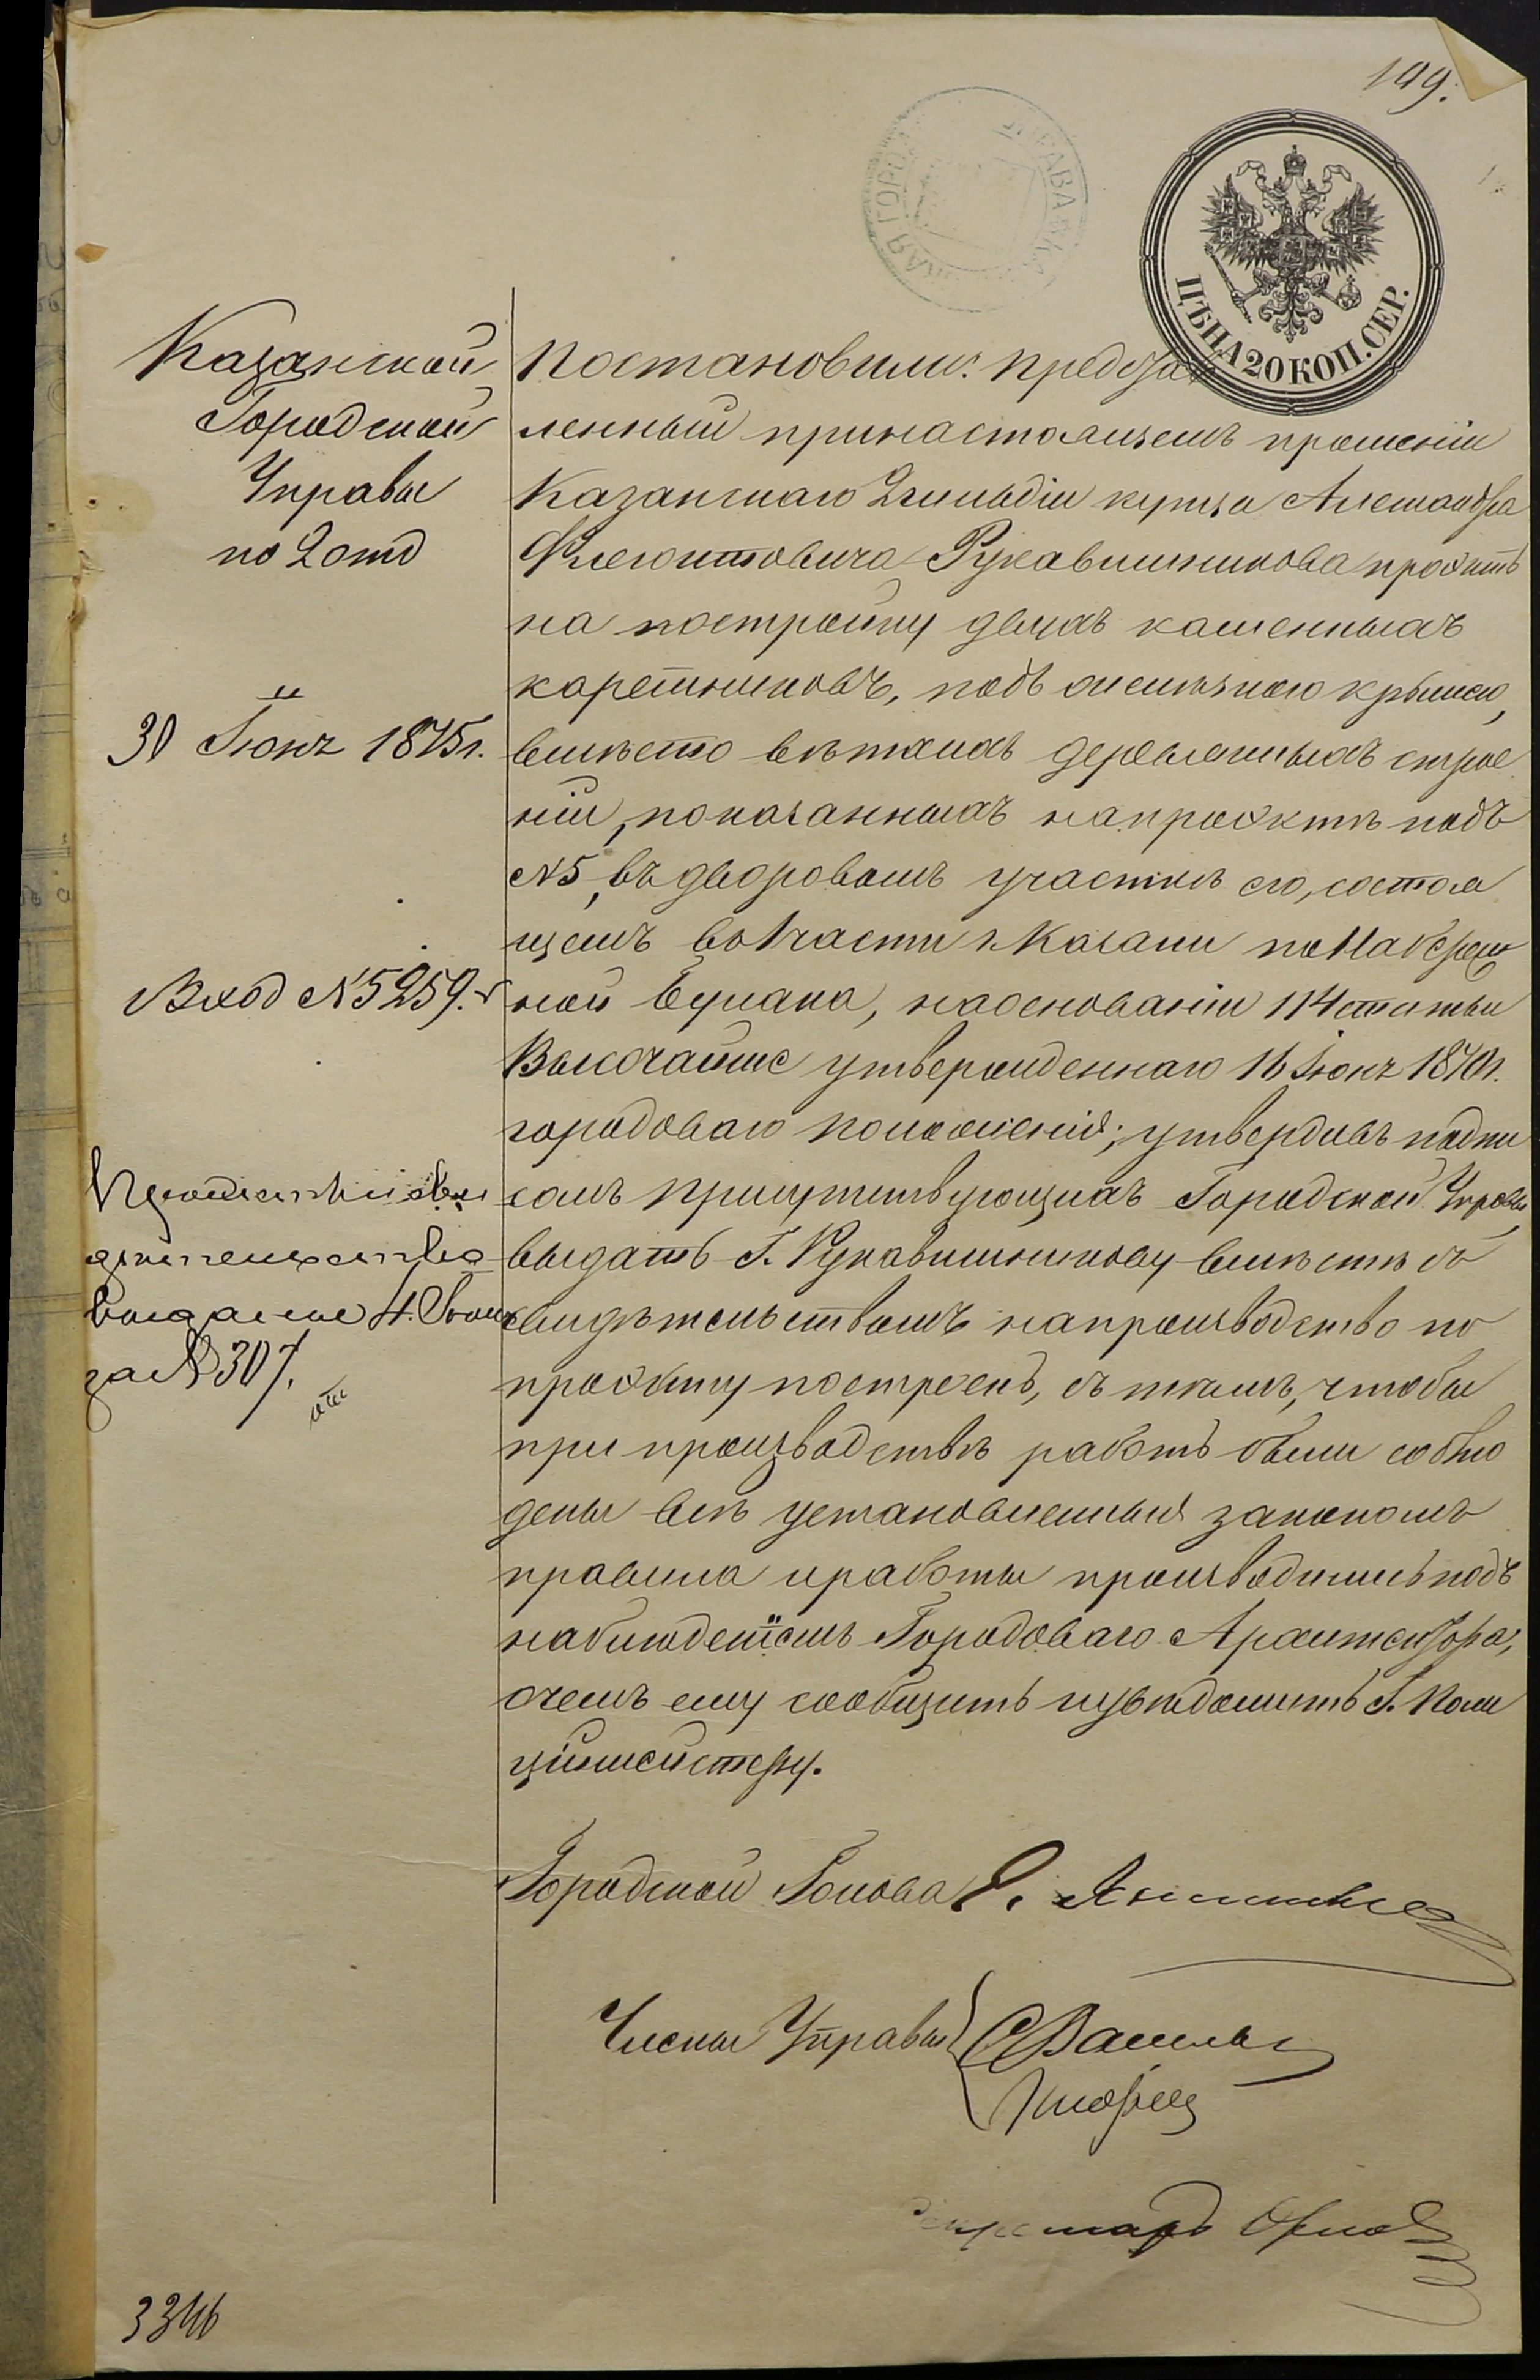 199.
ЦѢНА 20 КОП. СЕР.
Казанской
Городской
Управы
по 2 отд
30 Іюня 1875 г.
Вход № 5259.
выданы 4. Іюля
за № 307.
Постановили: представ
ленный при настоящемъ прошеніи
Казанскаго 2 гильдіи купца Александра
Флегонтовича Рукавишникова проэктъ
на постройку двухъ каменныхъ
каретниковъ, подъ желѣзною крышею,
вмѣсто вѣтхихъ деревянныхъ строе
ній, показанныхъ на проэктѣ подъ
№ 5, въ дворовомъ участкѣ его, состоя
щемъ во 1 части г. Казани по Набереж
ной Булака, на основаніи 114 статьи
Высочайше утвержденнаго 16 Іюня 1870 г.
городоваго положенія; утвердивъ подпи
сомъ присутствующихъ Городской Управы,
выдать Г. Рукавишникову вмѣстѣ съ
свидѣтельствомъ на производство по
проэкту построекъ, съ тѣмъ, чтобы
при производствѣ работъ были соблю
дены всѣ установленныя закономъ
правила и работы производились подъ
наблюденіемъ Городоваго Архитектора,
о чемъ ему сообщить и увѣдомить Г. Поли
ціймейстеру.
Городской Голова Э. Янишевскій
Члены Управы
Секретарь Орлов
3346